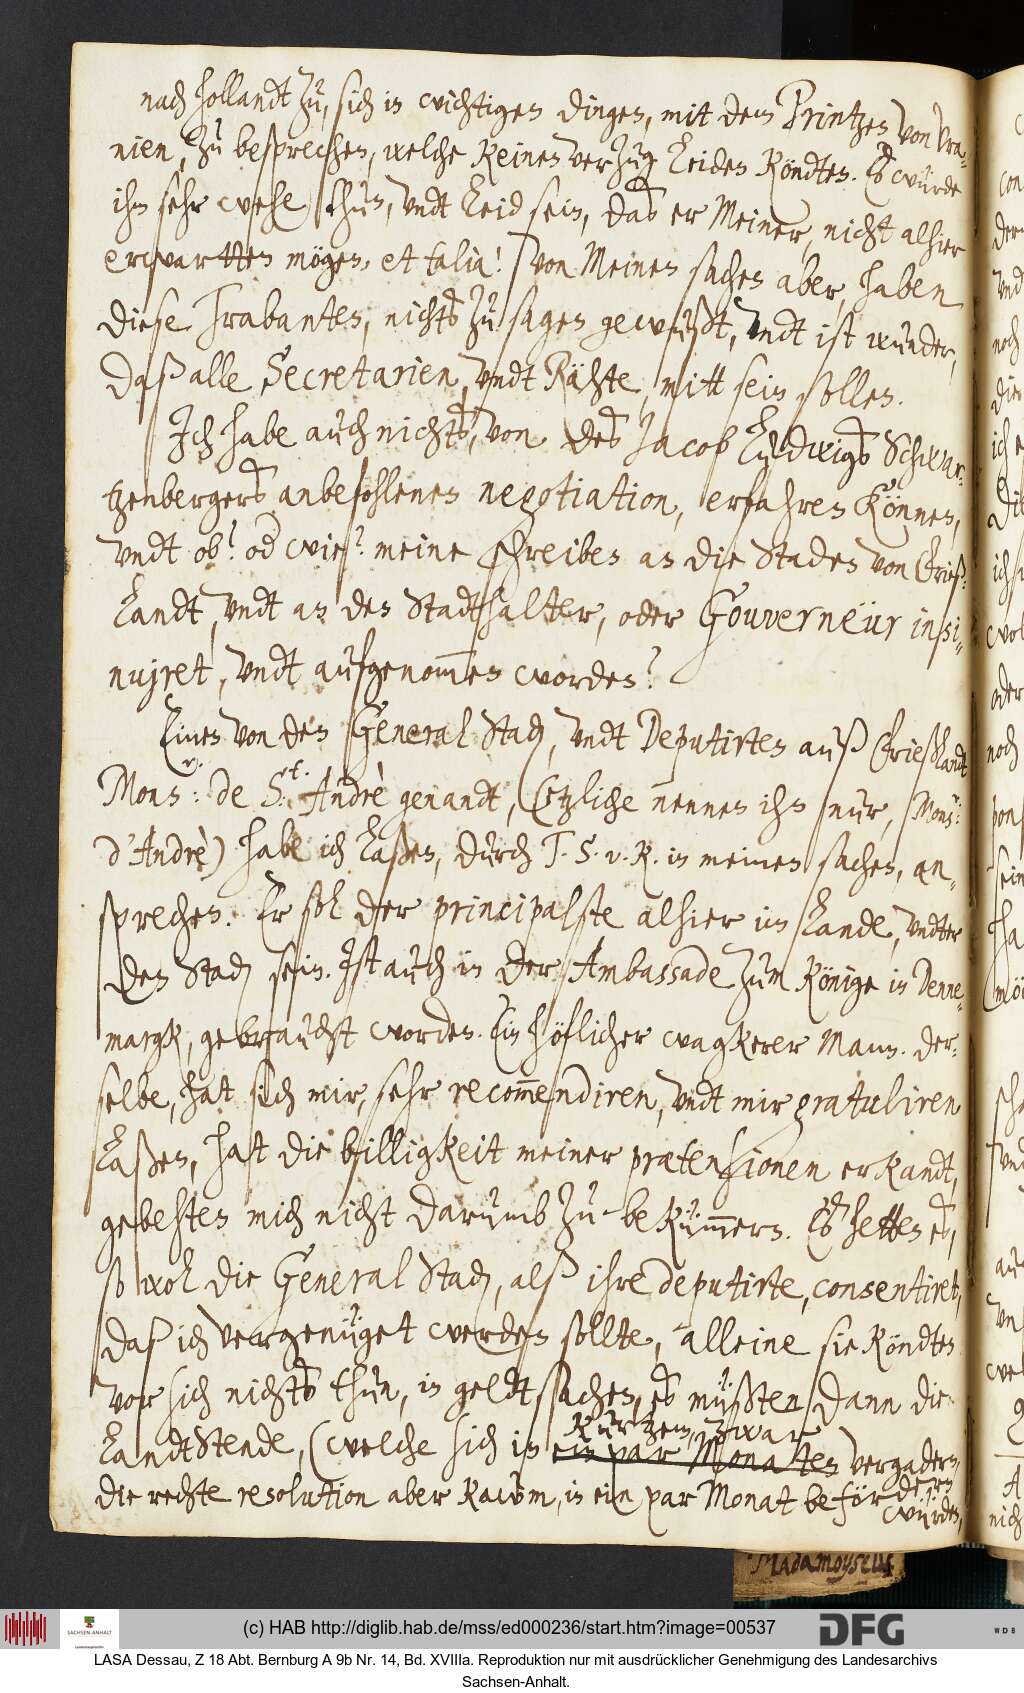 nach hollandt zu, sich in wichtigen dingen, mit dem Printzen von Vra-
nien, zu besprechen, welche keinen verzug leiden köndten. Es würde
ihm sehr wehe thun, vndt leid sein, das er Meiner, nicht alhier
erwartten mögen, et talia! Von Meinen sachen aber, haben
diese Trabanten, nichts zu sagen gewußt, vndt ist wunder,
daß alle Secretarien, vndt Rähte, mitt sein sollen.
Ich habe auch nichts, von des Jacob Ludwigs Schwar-
tzenbergers anbefohlenen negotiation, erfahren können,
vndt ob? od wie? meine schreiben an die Staden von Frieß-
landt, vndt an den Stadthalter, oder Gouverneür insi-
nujret, vndt aufgenom̅en worden?
Einen von den General Stad, vndt Deputirten auß Frießlandt
Mons:r de S:t Andrè genandt, (etzliche nennen ihn nur, Mons:r
d'Andrè) habe ich laßen, durch T. S. v. R. in meinen sachen, an-
sprechen. Er sol der principalste alhier im Lande, vndter
den Stad, sein. Ist auch in der Ambassade zum Könige in Denne-
margk, gebraucht worden. Ein höflicher wagkerer Mann. der-
selbe, hat sich mir, sehr recom̅endiren, vndt mir gratuliren
laßen, hat die billigkeit meiner prætensionen erkandt,
gebehten mich nicht darumb zu beküm̅ern. Es hetten es,
so wol die General Stad, alß ihre deputirte, consentiret,
daß ich vergenüget werden sollte, alleine sie köndten
vor sich nichts thun, in geldtsachen, es müßten dann die
kurtzem, zwar
LandtStende, (welche sich in ein par Monaten vergadern
die rechte resolution aber kaum, in ein par Monat befördern
würden,
Madamoyselle
(c) HAB http://diglib.hab.de/mss/ed000236/start.htm?image=00537
SACHSEN-ANHALT
DFG
WDB
LASA Dessau, Z 18 Abt. Bernburg A 9b Nr. 14, Bd. XVIIIa. Reproduktion nur mit ausdrücklicher Genehmigung des Landesarchivs
Sachsen-Anhalt.